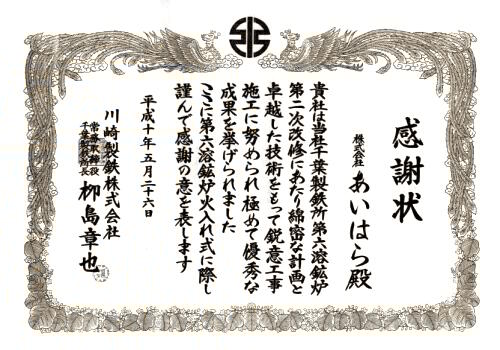 感謝状
株式会社 あいはら殿
貴社は当社千葉製鉄所第六溶鉱炉
第二次改修にあたり綿密な計画と
卓越した技術をもって鋭意工事
施工に努められ極めて優秀な
成果を挙げられました
ここに第六溶鉱炉火入れ式に際し
謹んで感謝の意を表します
平成十年五月二十六日
川崎製鉄株式会社
常務取締役
千葉製鉄所長
栁島章也